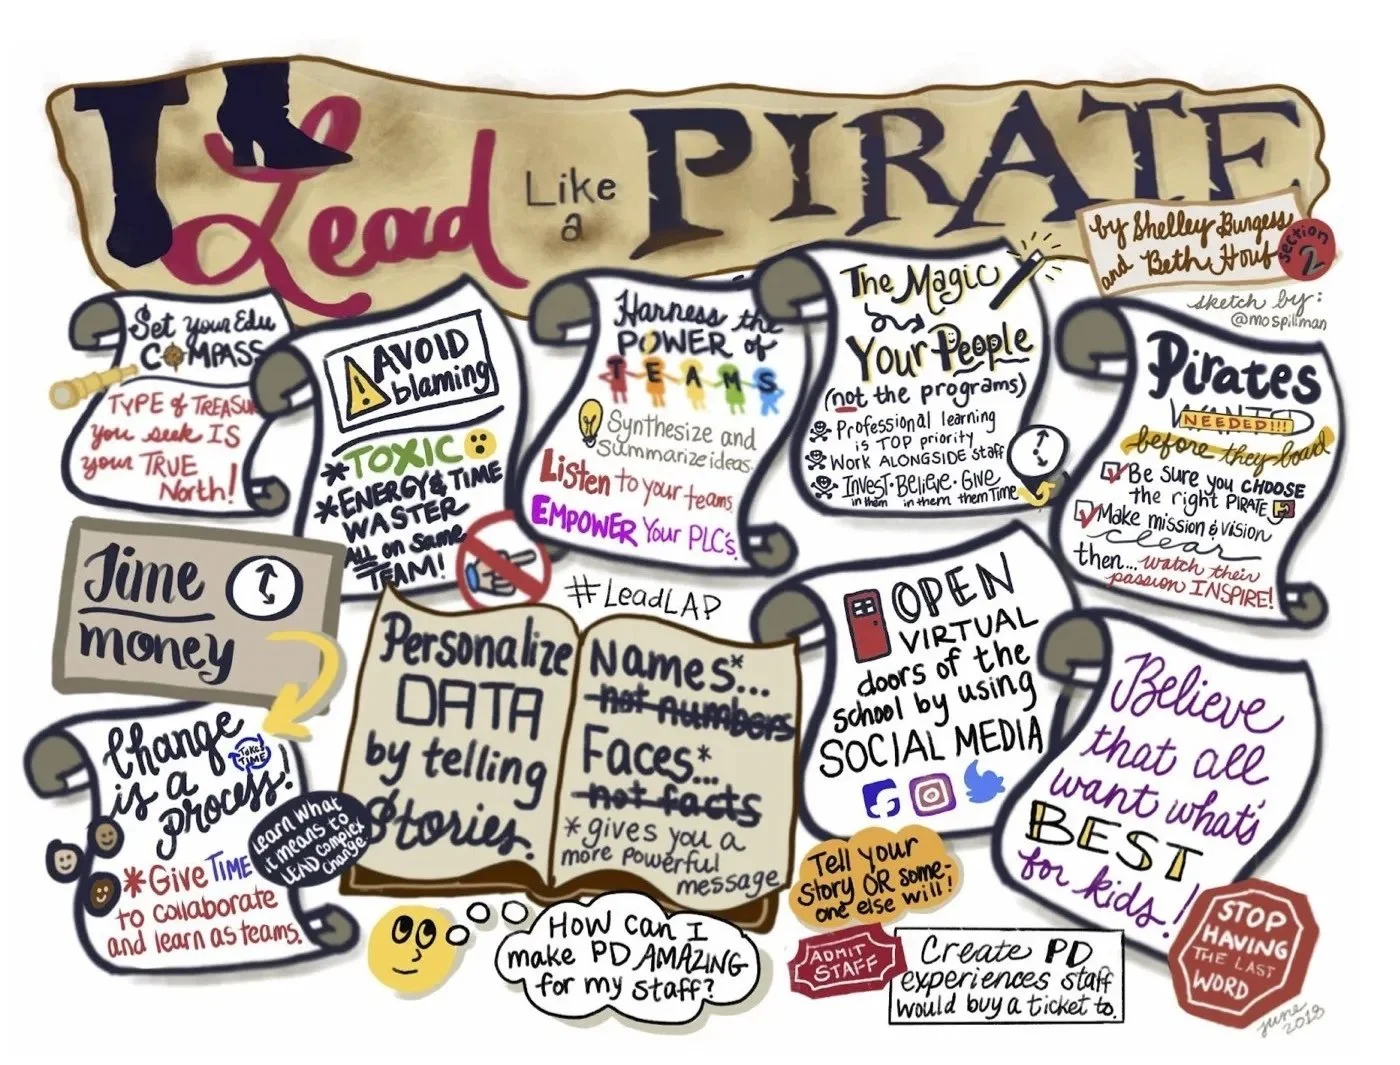 Lead
Like
a
PIRATE
by Shelley Burgess
and Beth Houf
section
2
sketch by:
@mospillman
Set your Edu
COMPASS
TYPE of TREASURE
you seek IS
your TRUE
North!
AVOID
blaming
TOXIC
*ENERGY & TIME
WASTER
ALL on Same
TEAM!
Harness the
POWER of
TEAMS
Synthesize and
summarize ideas.
Listen to your teams
EMPOWER Your PLC's
The Magic
is
Your People
(not the programs)
Professional learning
is TOP priority
Work ALONGSIDE staff
Invest · Believe · Give
in them in them them Time
Pirates
WANTED
NEEDED!!!
before they board
Be sure you CHOOSE
the right PIRATE
Make mission & vision
clear
then... watch their
passion INSPIRE!
Time
money
#LeadLAP
Change
is a
process!
Takes
TIME
*Give TIME
to collaborate
and learn as teams.
Learn what
it means to
LEAD complex
change
Personalize
DATA
by telling
Stories.
Names*...
not numbers
Faces*...
not facts
*gives you a
more powerful
message
OPEN
VIRTUAL
doors of the
school by using
SOCIAL MEDIA
Believe
that all
want what's
BEST
for kids!
Tell your
story OR some-
one else will!
HOW can I
make PD AMAZING
for my staff?
ADMIT
STAFF
Create PD
experiences staff
would buy a ticket to.
STOP
HAVING
THE LAST
WORD
june
2018